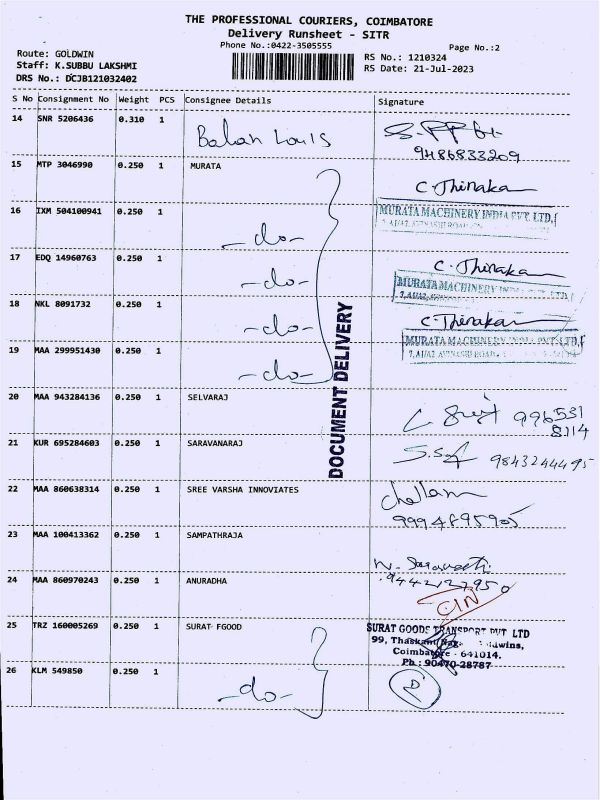 THE PROFESSIONAL COURIERS, COIMBATORE
Delivery Runsheet - SITR
Phone No.:0422-3505555
Page No.:2
Route: GOLDWIN
Staff: K.SUBBU LAKSHMI
DRS No.: DCJB121032402
RS No.: 1210324
RS Date: 21-Jul-2023
S No Consignment No Weight PCS Consignee Details Signature
14 SNR 5206436 0.310 1
9486833209
15 MTP 3046990 0.250 1 MURATA
C. Thinaka
16 IXM 504100941 0.250 1 -do-
MURATA MACHINERY INDIA PVT. LTD.,
17 EDQ 14960763 0.250 1 -do-
C. Thinaka
MURATA MACHINERY
18 NKL 8091732 0.250 1 -do-
C. Thinaka
MURATA MACHINERY INDIA PVT. LTD.,
19 MAA 299951430 0.250 1 -do-
DOCUMENT DELIVERY
20 MAA 943284136 0.250 1 SELVARAJ
996531
8114
21 KUR 695284603 0.250 1 SARAVANARAJ
9843244495
22 MAA 860638314 0.250 1 SREE VARSHA INNOVIATES
Chellam
23 MAA 100413362 0.250 1 SAMPATHRAJA
24 MAA 860970243 0.250 1 ANURADHA
25 TRZ 160005269 0.250 1 SURAT FGOOD
SURAT GOODS TRANSPORT PVT LTD
99,
Coimbatore - 641014.
Ph : 90470-28787
26 KLM 549850 0.250 1 -do-